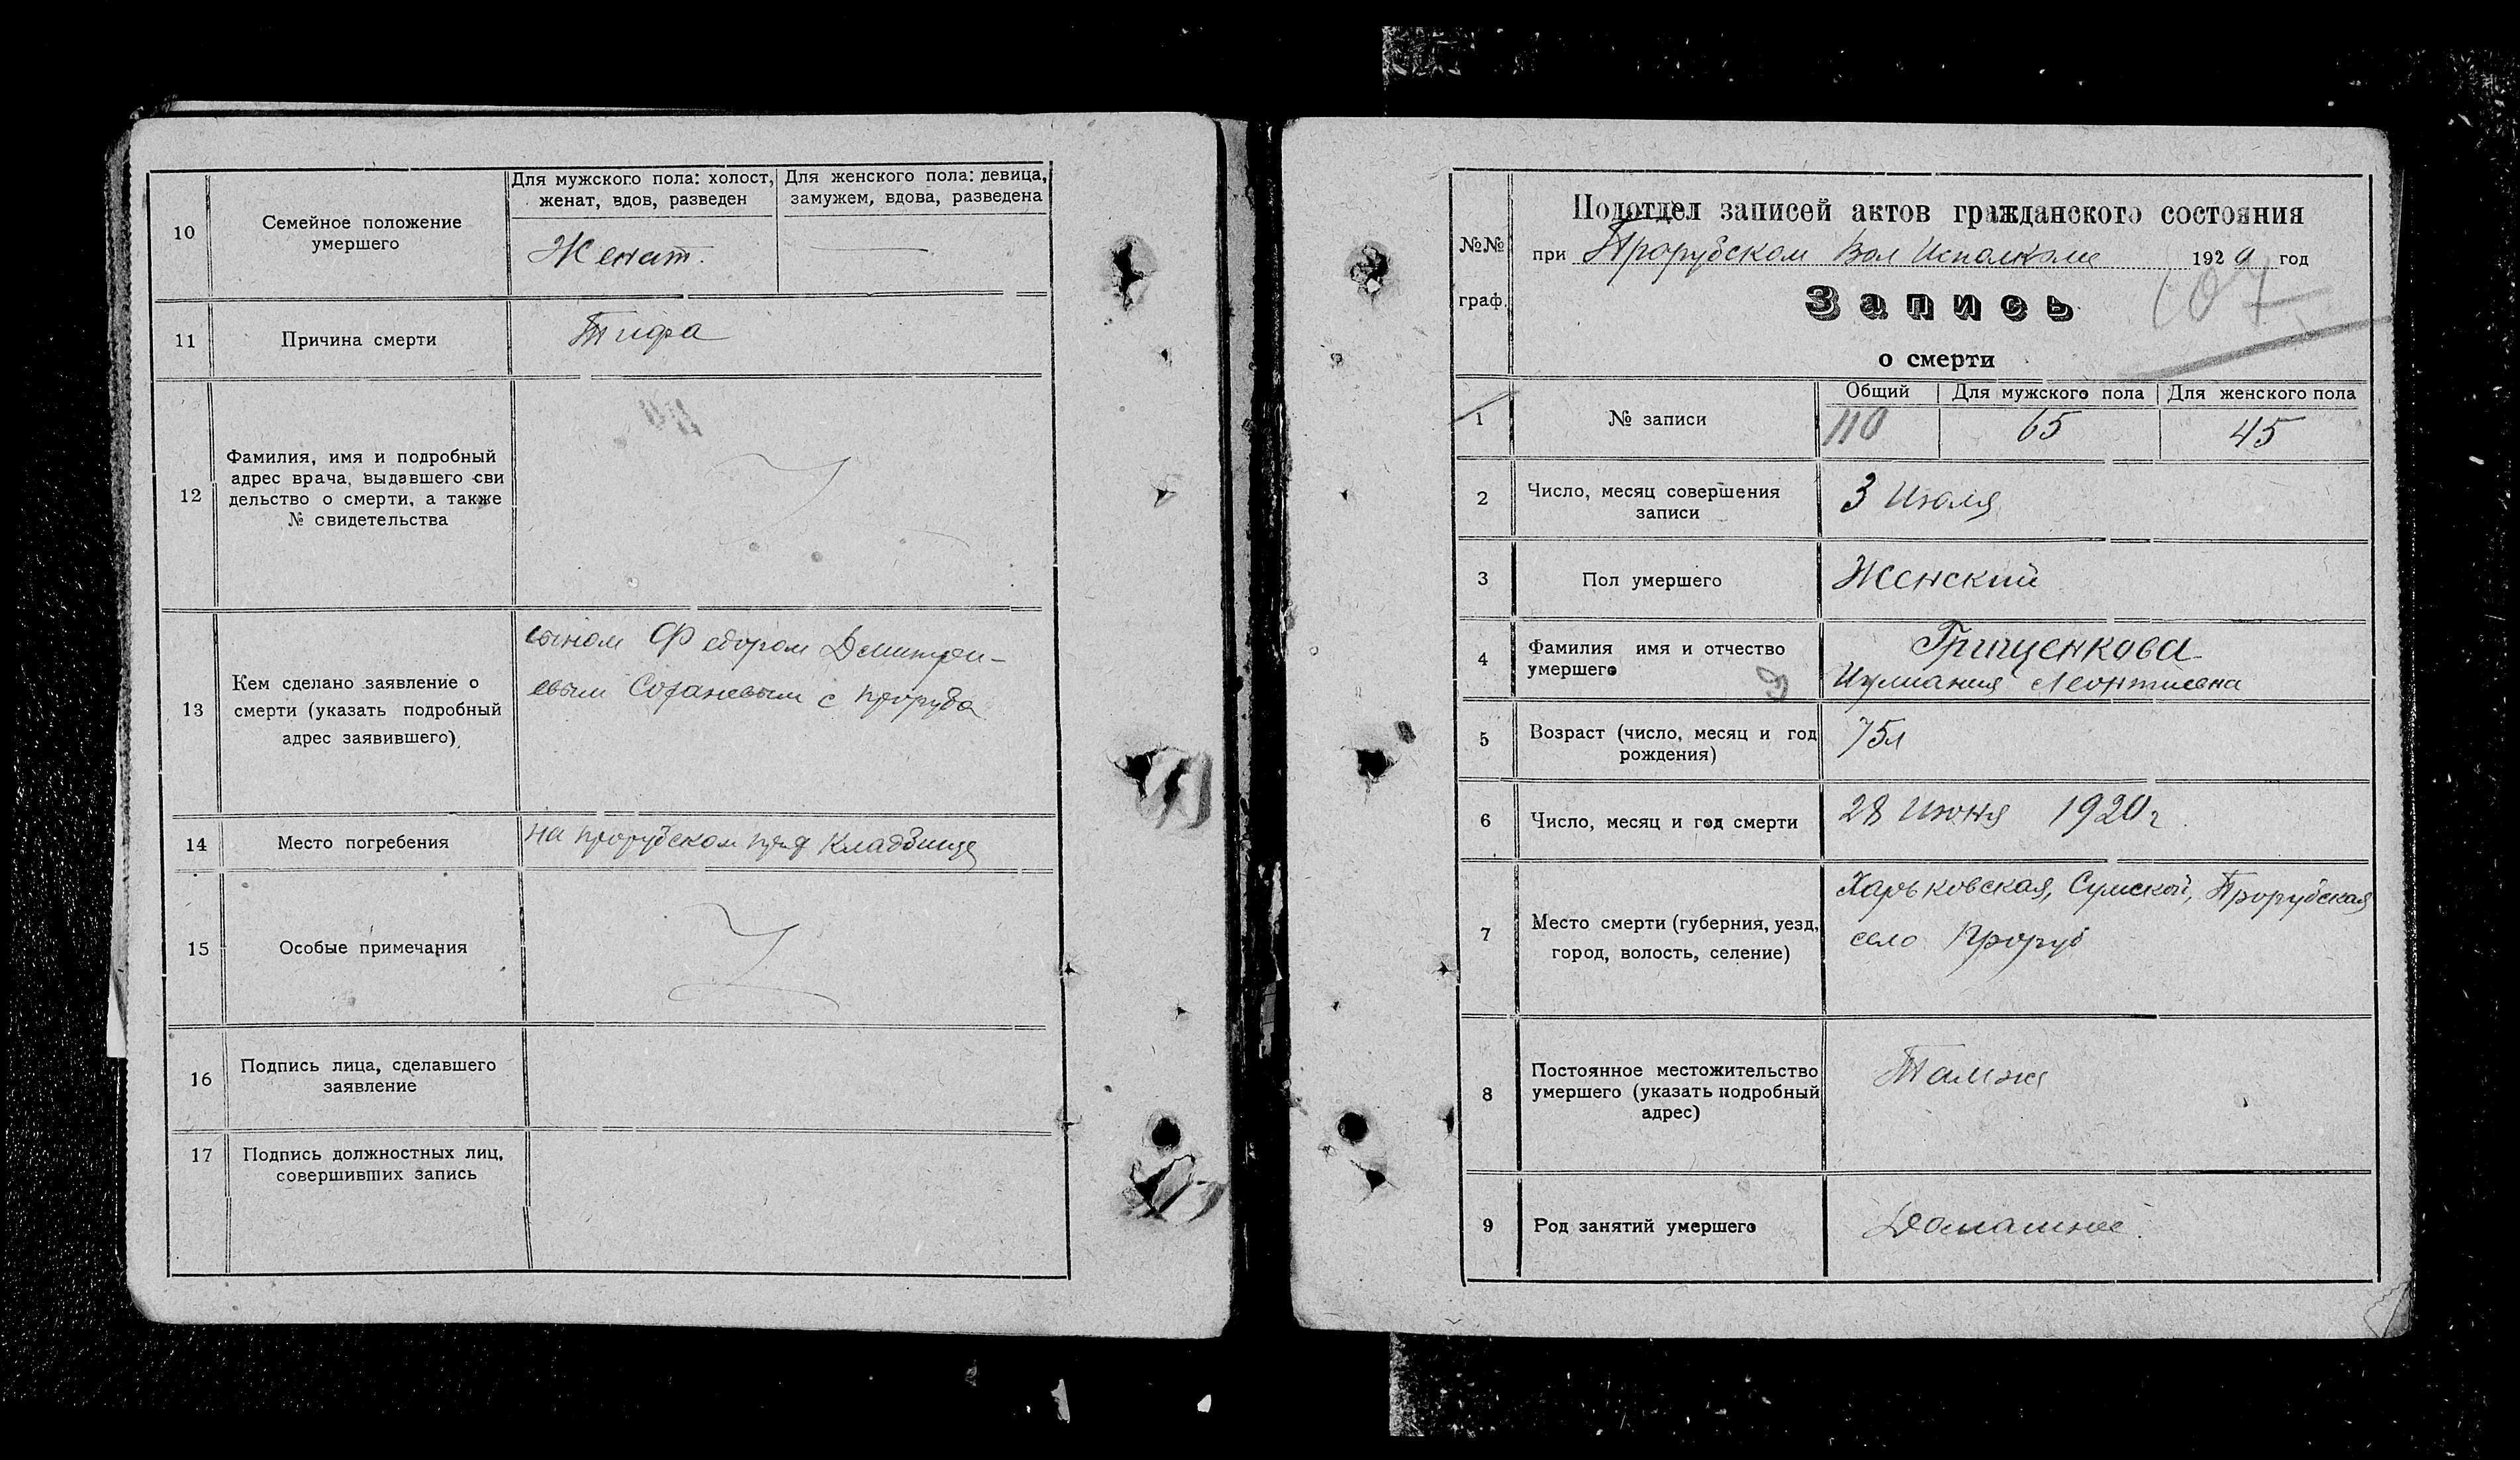 10
Семейное положение
умершего
Для мужского пола: холост,
женат, вдов, разведен
Женат.
Для женского пола: девица,
замужем, вдова, разведена
11
Причина смерти
Тифа
12
Фамилия, имя и подробный
адрес врача, выдавшего сви
дельство о смерти, а также
№ свидетельства
13
Кем сделано заявление о
смерти (указать подробный
адрес заявившего)
сыном Федором Дмитри-
евым с Проруба
14
Место погребения
на прорубском кладбище
15
Особые примечания
16
Подпись лица, сделавшего
заявление
17
Подпись должностных лиц,
совершивших запись
№№
граф.
Подотдел записей актов гражданского состояния
при Прорубском Вол Исполкоме 1920 год
Запись
107
о смерти
1
№ записи
Общий
Для мужского пола
Для женского пола
110
65
45
2
Число, месяц совершения
записи
3 Июля
3
Пол умершего
Женский
4
Фамилия имя и отчество
умершего
Грищенкова
Иулиания Леонтиевна
5
Возраст (число, месяц и год
рождения)
75л
6
Число, месяц и год смерти
28 Июня 1920 г
7
Место смерти (губерния, уезд,
город, волость, селение)
Харьковская, Сумской, Прорубская
село Проруб
8
Постоянное местожительство
умершего (указать подробный
адрес)
Там же
9
Род занятий умершего
Домашнее.